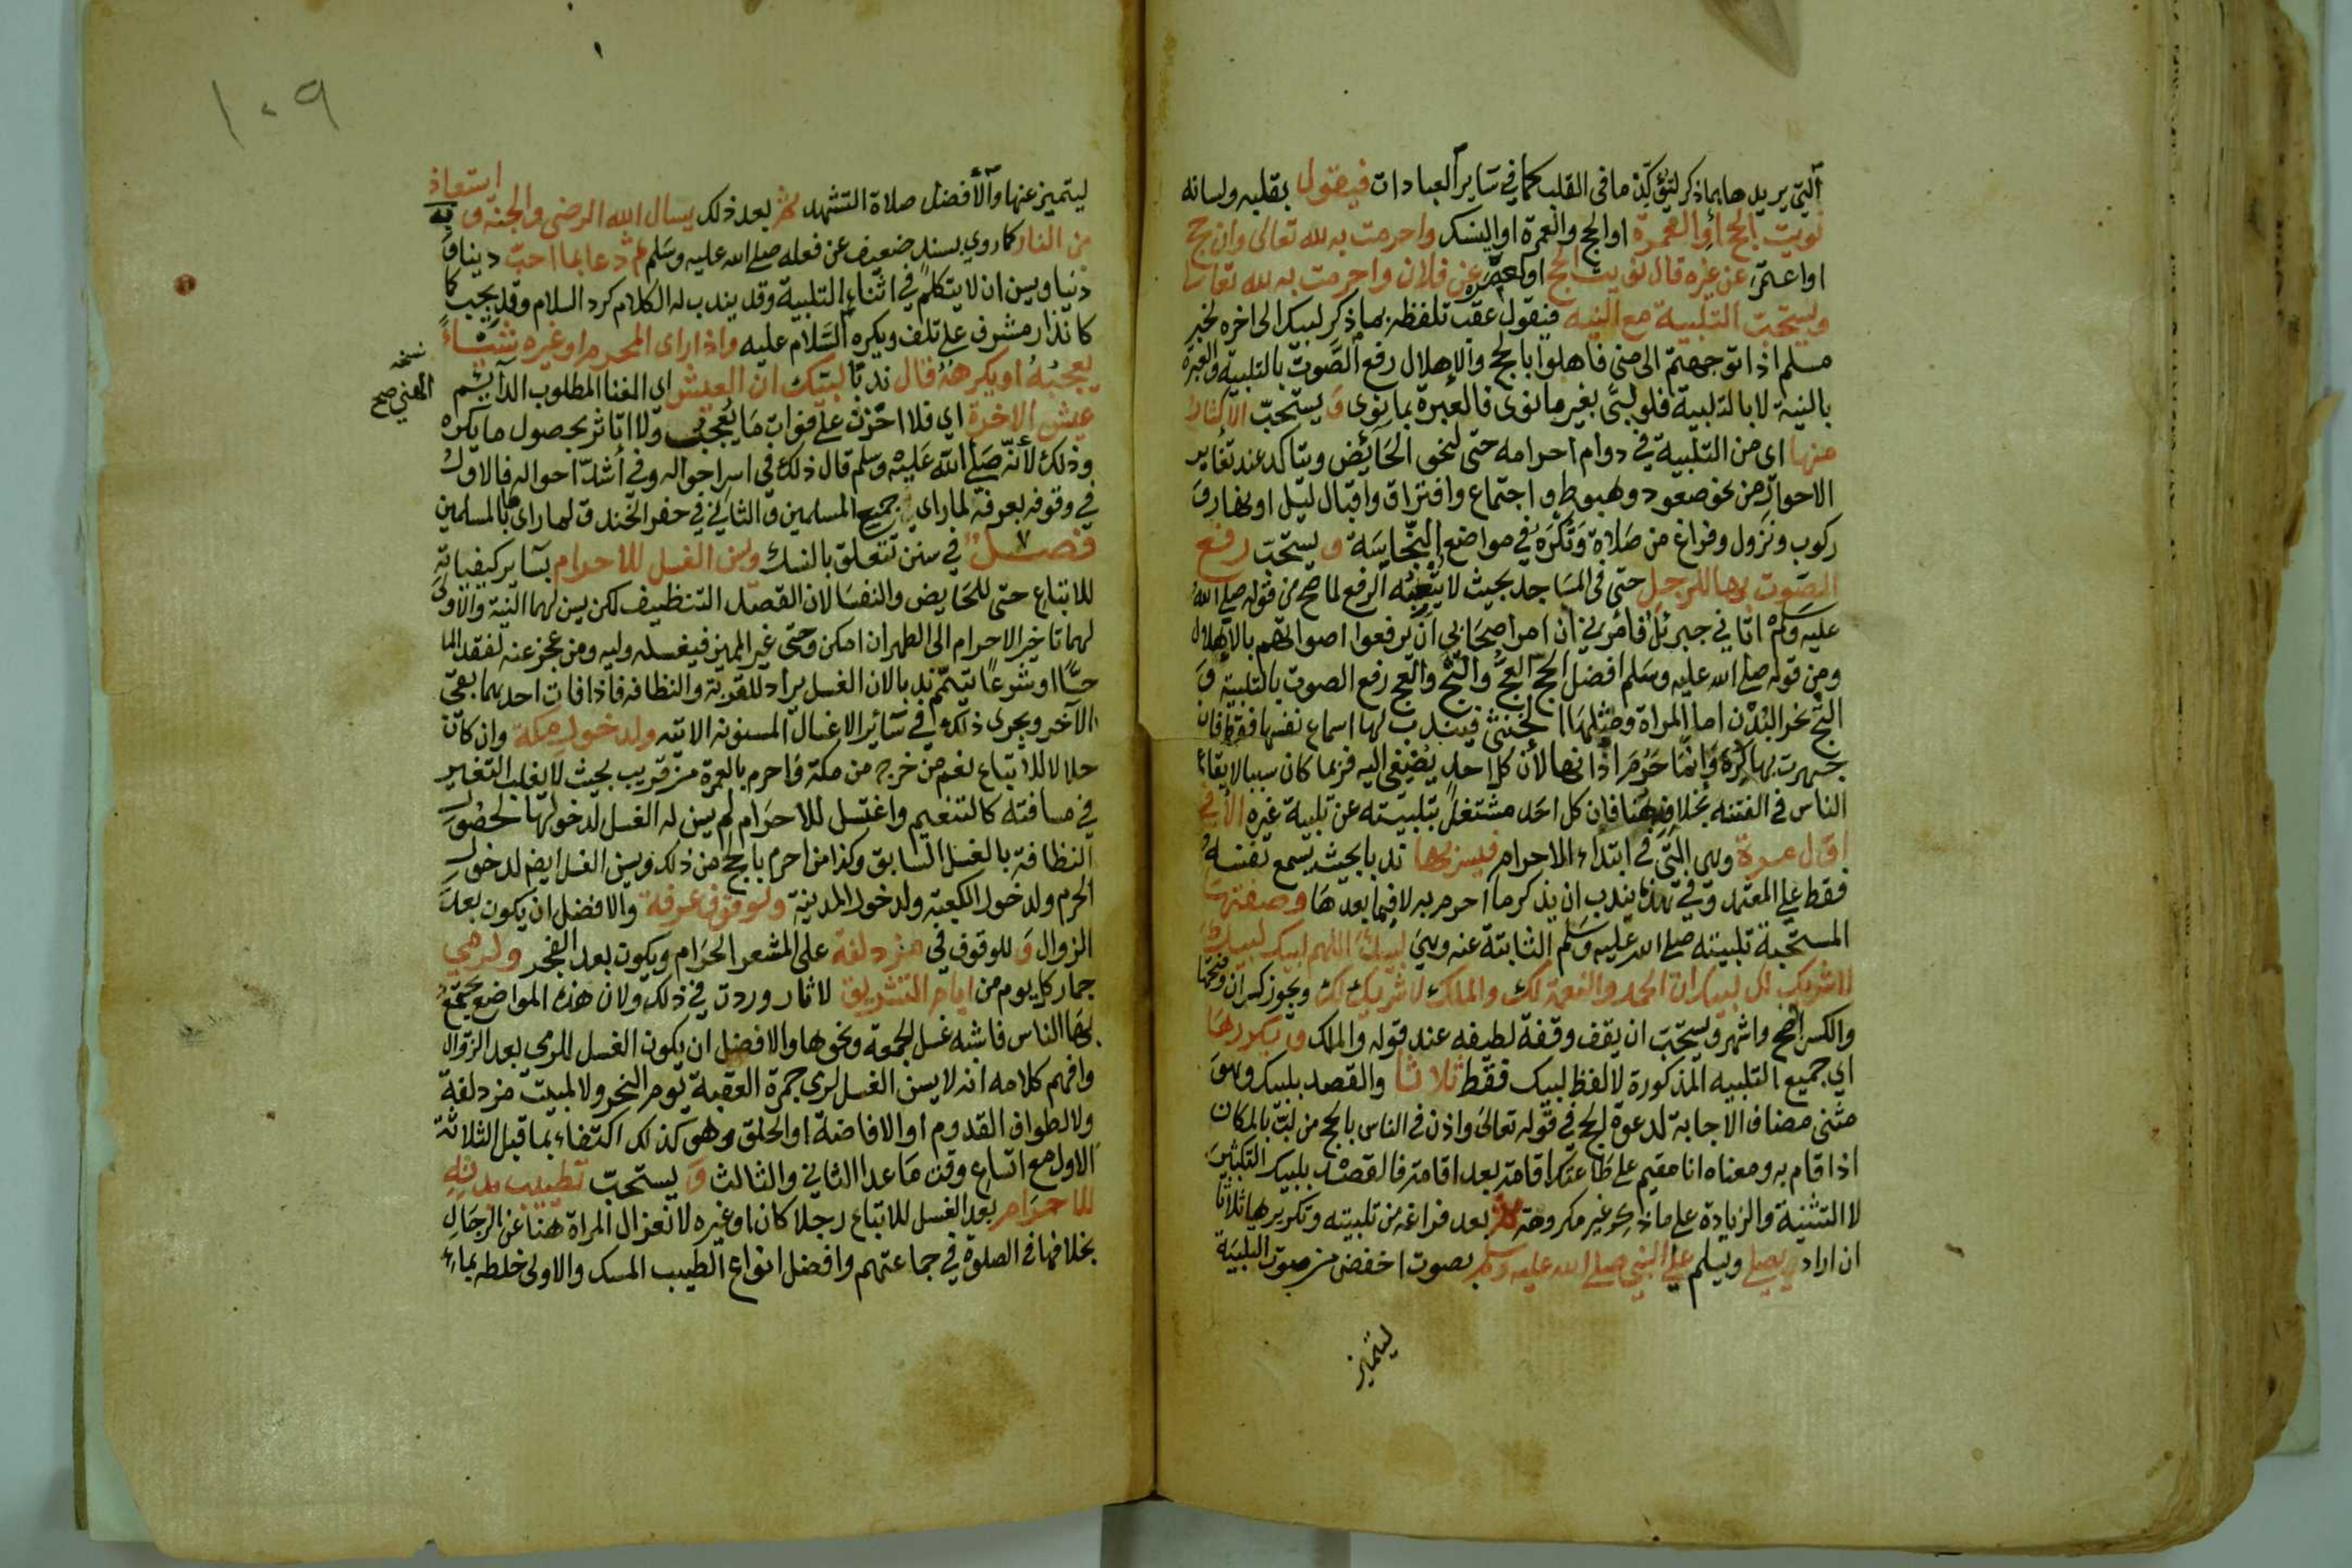 التي يريدها بما ذكر ليتؤكد ما في القلب كما في ساير العبادات فيقول بقلبه ولسانه
نويت الحج او العمرة او الحج والعمرة او النسك واحرمت به لله تعالى وان حج
او اعتمر عن غيره قال نويت الحج او العمرة عن فلان واحرمت به لله تعالى
ويستحب التلبية مع النية فيقول عقب تلفظه بما ذكر لبيك الى اخره لخبر
مسلم اذا توجهتم الى منى فاهلوا بالحج والاهلال رفع الصوت بالتلبية والعبرة
بالنية لا بالتلبية فلو لبى بغير ما نوى فالعبرة بما نوى و يستحب الاكثار
منها اى من التلبية في دوام احرامه حتى لنحو الحائض ويتاكد عند تغاير
الاحوال من نحو صعود وهبوط و اجتماع وافتراق واقبال ليل او نهار و
ركوب ونزول وفراغ من صلاة وتكره في مواضع النجاسة و يستحب رفع
الصوت بها للرجل حتى في المساجد بحيث لا يتعبه الرفع لما صح من قوله صلى الله
عليه وسلم اتاني جبرئل فامرني ان امر اصحابي ان يرفعوا اصواتهم بالاهلال
ومن قوله صلى الله عليه وسلم افضل الحج العج والثج والعج رفع الصوت بالتلبية و
الثج نحر البدن اما المراة ومثلها الخنثى فيندب لها اسماع نفسها فقط فان
جهرت بها كره وانما حرم اذانها لان كل احد يصغي اليه فربما كان سببا لايقاع
الناس في الفتنة بخلافه هنا فان كل احد مشتغل بتلبيته عن تلبية غيره الا في
اول مرة وهي التي في ابتداء الاحرام فيسر بها ندبا بحيث يسمع نفسه
فقط على المعتمد وفي هذه يندب ان يذكر ما احرم به لا فيما بعدها وصفتها
المستحبة تلبيته صلى الله عليه وسلم الثابتة عنه وهي لبيك اللهم لبيك لبيك
لا شريك لك لبيك ان الحمد والنعمة لك والملك لا شريك لك ويجوز كسر ان وفتحها
والكسر اصح واشهر ويستحب ان يقف وقفة لطيفه عند قوله والملك و يكررها
اي جميع التلبيه المذكورة لا لفظ لبيك فقط ثلاثا والقصد بلبيك وهو
مثنى مضاف الاجابة لدعوة الحج في قوله تعالى واذن في الناس بالحج من لب بالمكان
اذا قام به ومعناه انا مقيم على طاعتك اقامة بعد اقامة فالقصد بلبيك التكثير
لا التثنية والزيادة على ما ذكر غير مكروهة ثم بعد فراغه من تلبيته وتكريرها ثلاثا
ان اراد يصلي ويسلم على النبي صلى الله عليه وسلم بصوت اخفض من صوت التلبية
ليتميز
١٠٩
ليتميز عنها والافضل صلاة التشهد ثم بعد ذلك يسال الله الرضى والجنة و استعاذ به
من النار كما روي بسند ضعيف عن فعله صلى الله عليه وسلم ثم دعا بما احب دينا و
دنيا ويسن ان لا يتكلم في اثناء التلبية وقد يندب له الكلام كرد السلام وقد يجب كا
كانذار مشرف على تلف ويكره السلام عليه واذا راى المحرم او غيره شيئاً
يعجبه او يكرهه قال ندبا لبيك ان العيش اى الغنا المطلوب الدائم
نسخه
الهني صح
عيش الاخرة اي فلا احزن على فوات ما يعجب ولا اتاثر بحصول ما يكره
وذلك لانه صلى الله عليه وسلم قال ذلك في اسر احواله وفي اشد احواله فالاول
في وقوفه بعرفة لما راى جميع المسلمين والثاني في حفر الخندق لما راى ما بالمسلمين
فصل في سنن تتعلق بالنسك وسن الغسل للاحرام بساير كيفياته
للاتباع حتى للحايض والنفسا لان القصد التنظيف لكن يسن لهما النية والاولى
لهما تاخير الاحرام الى الطهر ان امكن وحتى غير المميز فيغسله وليه ومن عجز عنه لفقد الما
حسا او شرعا تيمم ندبا لان الغسل يراد للقربة والنظافة فاذا فات احدهما بقي
الآخر ويجرى ذلك في سائر الاغسال المسنونة الاتيه ولدخول مكة وان كان
حلالا للاتباع نعم من خرج من مكة فاحرم بالعمرة من قريب بحيث لا يغلب التغير
في مسافته كالتنعيم واغتسل للاحرام لم يسن له الغسل لدخولها لحصول
النظافة بالغسل السابق وكذا من احرم بالحج من ذلك ويسن الغسل ايضا لدخول
الحرم ولدخول الكعبة ولدخول المدينة ولوقوف عرفة والافضل ان يكون بعد
الزوال و للوقوف في مزدلفة على المشعر الحرام ويكون بعد الفجر ولرمي
جمار كل يوم من ايام التشريق لاثار وردت في ذلك ولان هذه المواضع يجتمع
بها الناس فاشبه غسل الجمعة ونحوها والافضل ان يكون الغسل للرمي بعد الزوال
وافهم كلامه انه لا يسن الغسل لرمي جمرة العقبة يوم النحر ولا لمبيت مزدلفة
ولا لطواف القدوم او الافاضة او الحلق وهو كذلك اكتفاء بما قبل الثلاثة
الاول مع اتساع وقت ما عدا الثاني والثالث و يستحب تطييب بدنه
للاحرام بعد الغسل للاتباع رجلا كان او غيره لانعزال المراة هنا عن الرجال
بخلافها في الصلوة في جماعتهم وافضل انواع الطيب المسك والاولى خلطه بماء